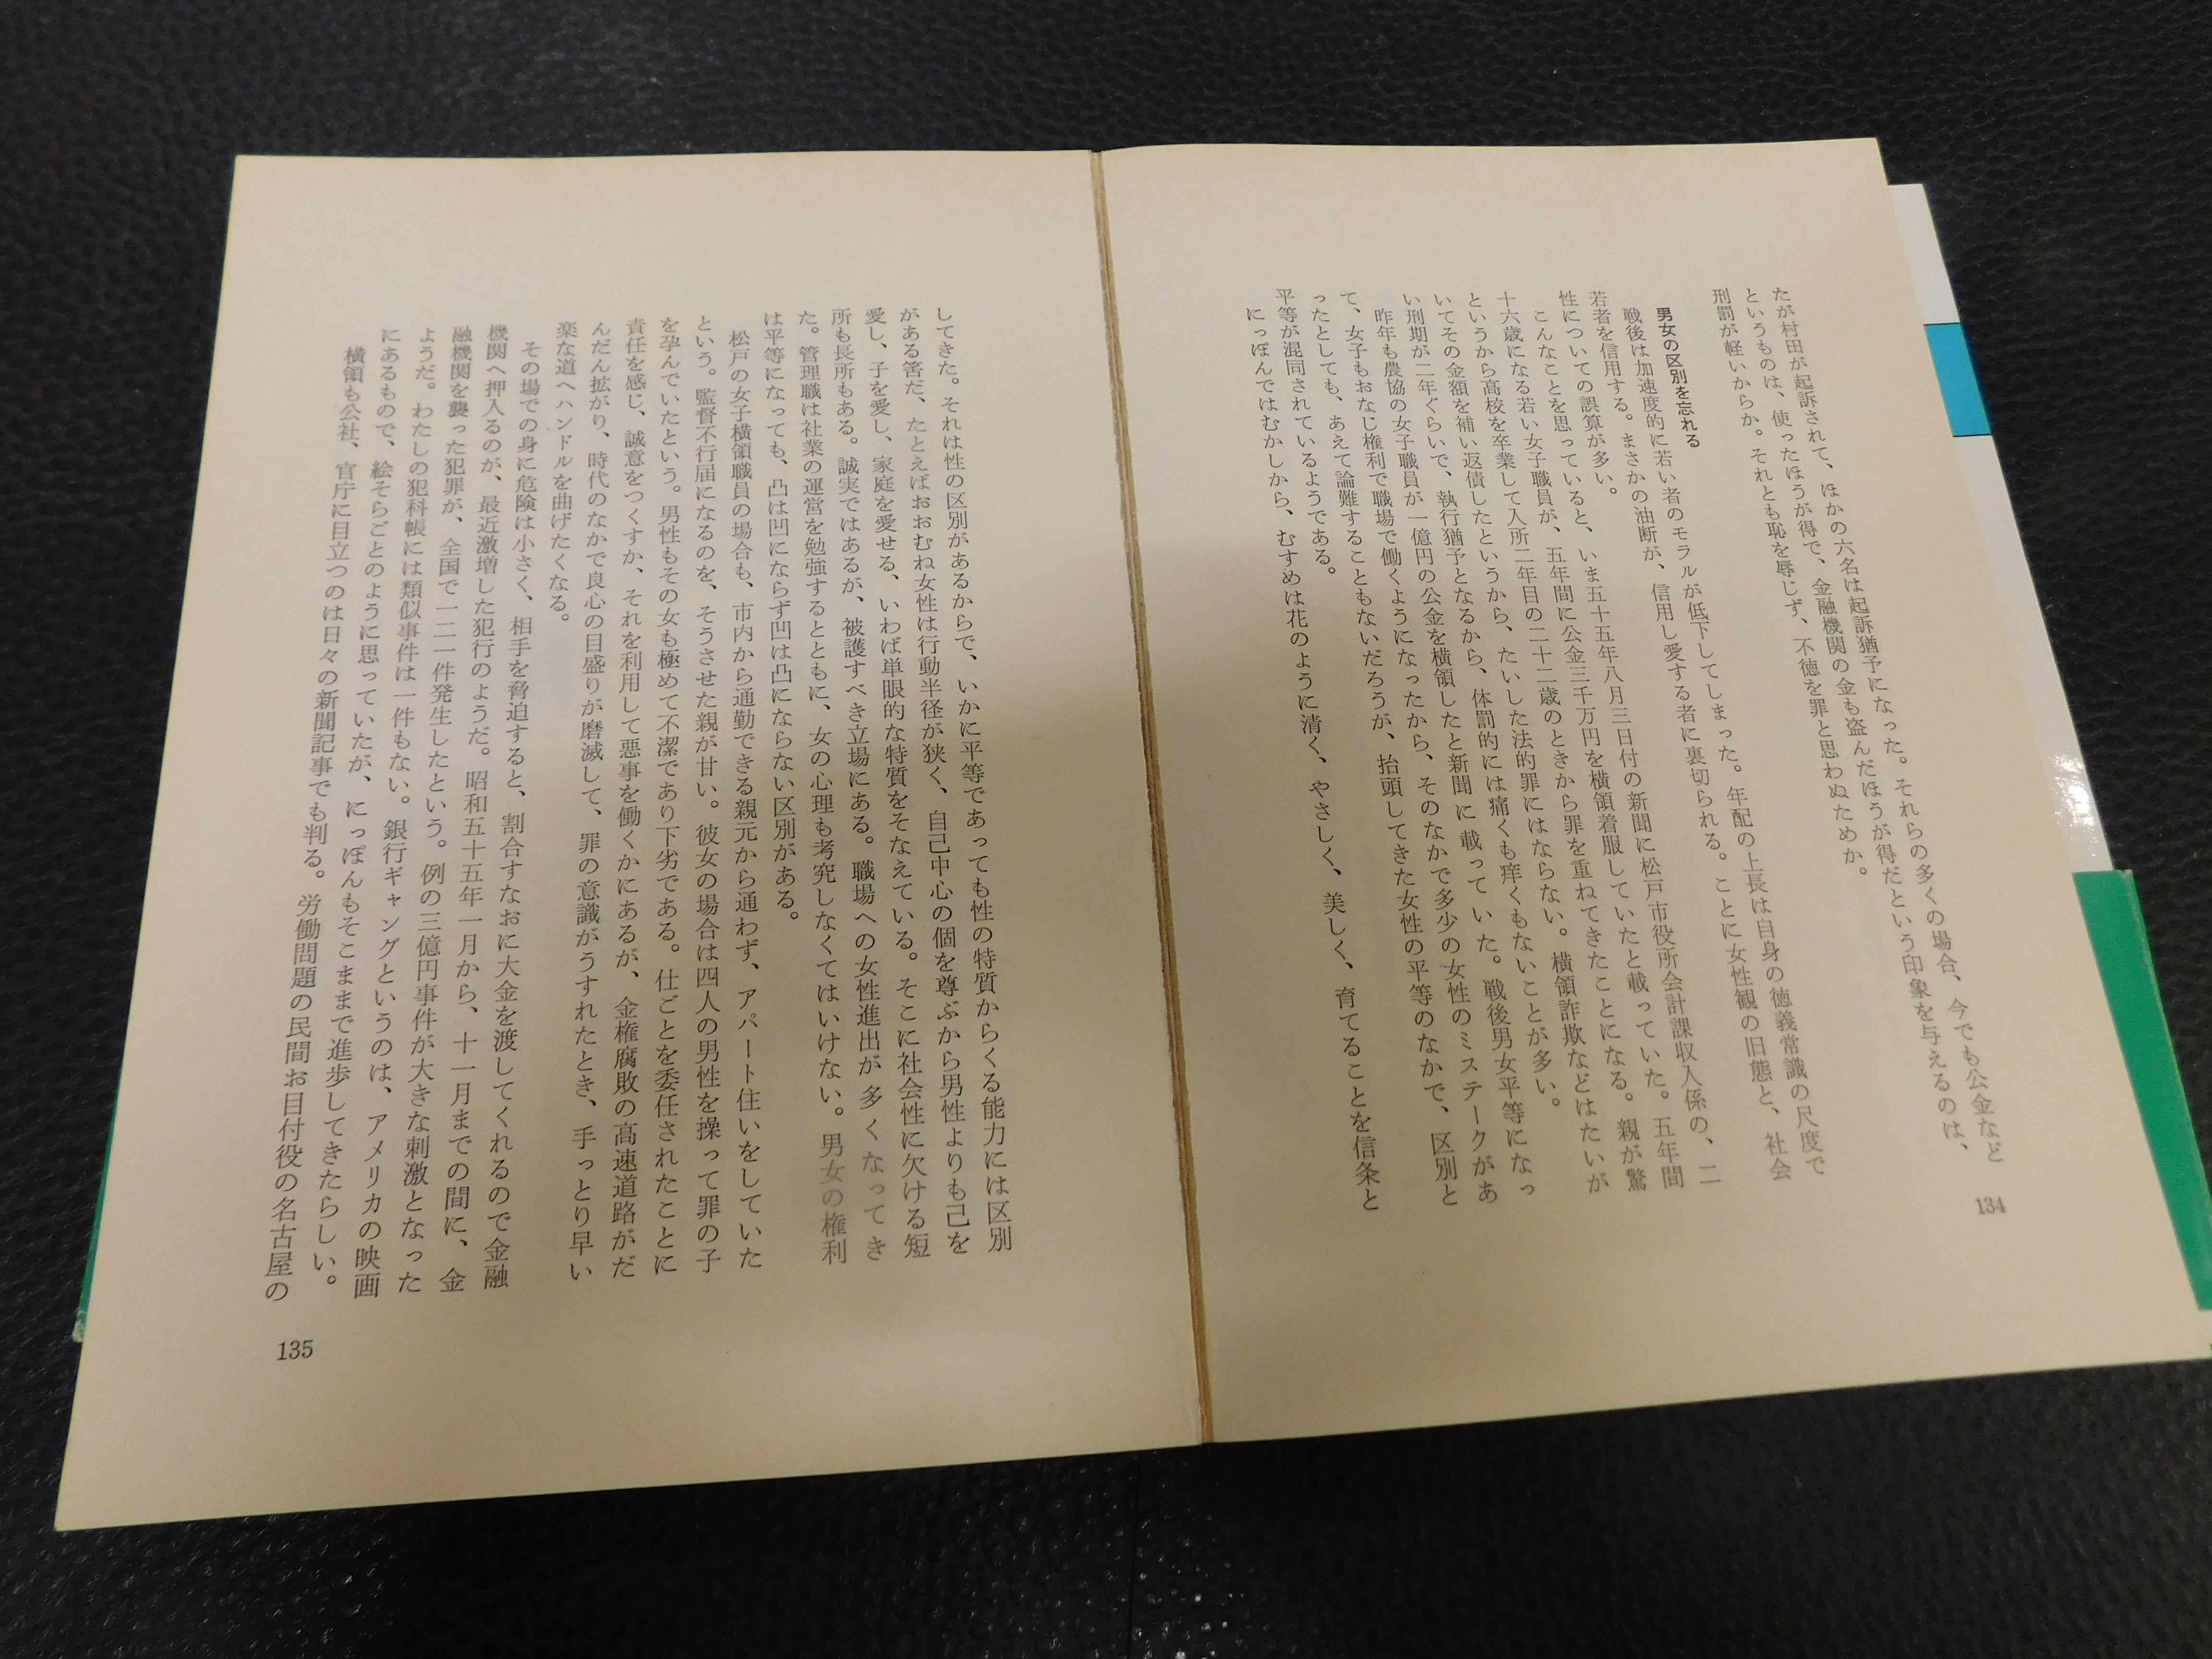 たが村田が起訴されて、ほかの六名は起訴猶予になった。それらの多くの場合、今でも公金など
というものは、使ったほうが得で、金融機関の金も盗んだほうが得だという印象を与えるのは、
刑罰が軽いからか。それとも恥を辱じず、不徳を罪と思わぬためか。
男女の区別を忘れる
戦後は加速度的に若い者のモラルが低下してしまった。年配の上長は自身の徳義常識の尺度で
若者を信用する。まさかの油断が、信用し愛する者に裏切られる。ことに女性観の旧態と、社会
性についての誤算が多い。
こんなことを思っていると、いま五十五年八月三日付の新聞に松戸市役所会計課収入係の、二
十六歳になる若い女子職員が、五年間に公金三千万円を横領着服していたと載っていた。五年間
というから高校を卒業して入所二年目の二十二歳のときから罪を重ねてきたことになる。親が驚
いてその金額を補い返債したというから、たいした法的罪にはならない。横領詐欺などはたいが
い刑期が二年ぐらいで、執行猶予となるから、体罰的には痛くも痒くもないことが多い。
昨年も農協の女子職員が一億円の公金を横領したと新聞に載っていた。戦後男女平等になっ
て、女子もおなじ権利で職場で働くようになったから、そのなかで多少の女性のミステークがあ
ったとしても、あえて論難することもないだろうが、抬頭してきた女性の平等のなかで、区別と
平等が混同されているようである。
にっぽんではむかしから、むすめは花のように清く、やさしく、美しく、育てることを信条と
134
してきた。それは性の区別があるからで、いかに平等であっても性の特質からくる能力には区別
がある筈だ、たとえばおおむね女性は行動半径が狭く、自己中心の個を尊ぶから男性よりも己を
愛し、子を愛し、家庭を愛せる、いわば単眼的な特質をそなえている。そこに社会性に欠ける短
所も長所もある。誠実ではあるが、被護すべき立場にある。職場への女性進出が多くなってき
た。管理職は社業の運営を勉強するとともに、女の心理も考究しなくてはいけない。男女の権利
は平等になっても、凸は凹にならず凹は凸にならない区別がある。
松戸の女子横領職員の場合も、市内から通勤できる親元から通わず、アパート住いをしていた
という。監督不行届になるのを、そうさせた親が甘い。彼女の場合は四人の男性を操って罪の子
を孕んでいたという。男性もその女も極めて不潔であり下劣である。仕ごとを委任されたことに
責任を感じ、誠意をつくすか、それを利用して悪事を働くかにあるが、金権腐敗の高速道路がだ
んだん拡がり、時代のなかで良心の目盛りが磨滅して、罪の意識がうすれたとき、手っとり早い
楽な道へハンドルを曲げたくなる。
その場での身に危険は小さく、相手を脅迫すると、割合すなおに大金を渡してくれるので金融
機関へ押入るのが、最近激増した犯行のようだ。昭和五十五年一月から、十一月までの間に、金
融機関を襲った犯罪が、全国で一二一件発生したという。例の三億円事件が大きな刺激となった
ようだ。わたしの犯科帳には類似事件は一件もない。銀行ギャングというのは、アメリカの映画
にあるもので、絵そらごとのように思っていたが、にっぽんもそこままで進歩してきたらしい。
横領も公社、官庁に目立つのは日々の新聞記事でも判る。労働問題の民間お目付役の名古屋の
135